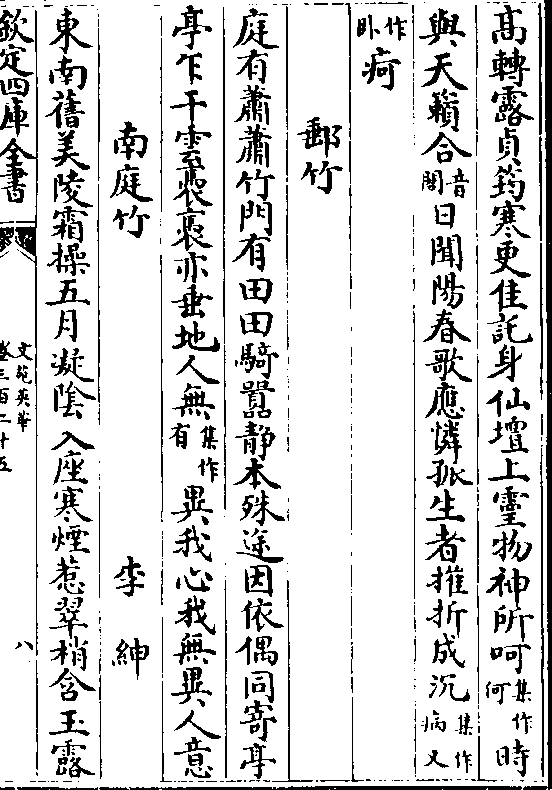 高轉露貞筠寒更佳託身仙壇上靈物神所呵集作何時
與天籟合音閤日聞陽春歌應憐孤生者摧折成沉集作病又
作卧疴
郵竹
庭有蕭蕭竹門有田田騎囂静本殊途因依偶同寄亭
亭乍干雲裊裊亦垂地人無集作有異我心我無異人意
南庭竹 李紳
東南舊美陵霜操五月凝隂入座寒煙惹翠梢含玉露
欽定四庫全書
文苑英華
卷三百二十五
八